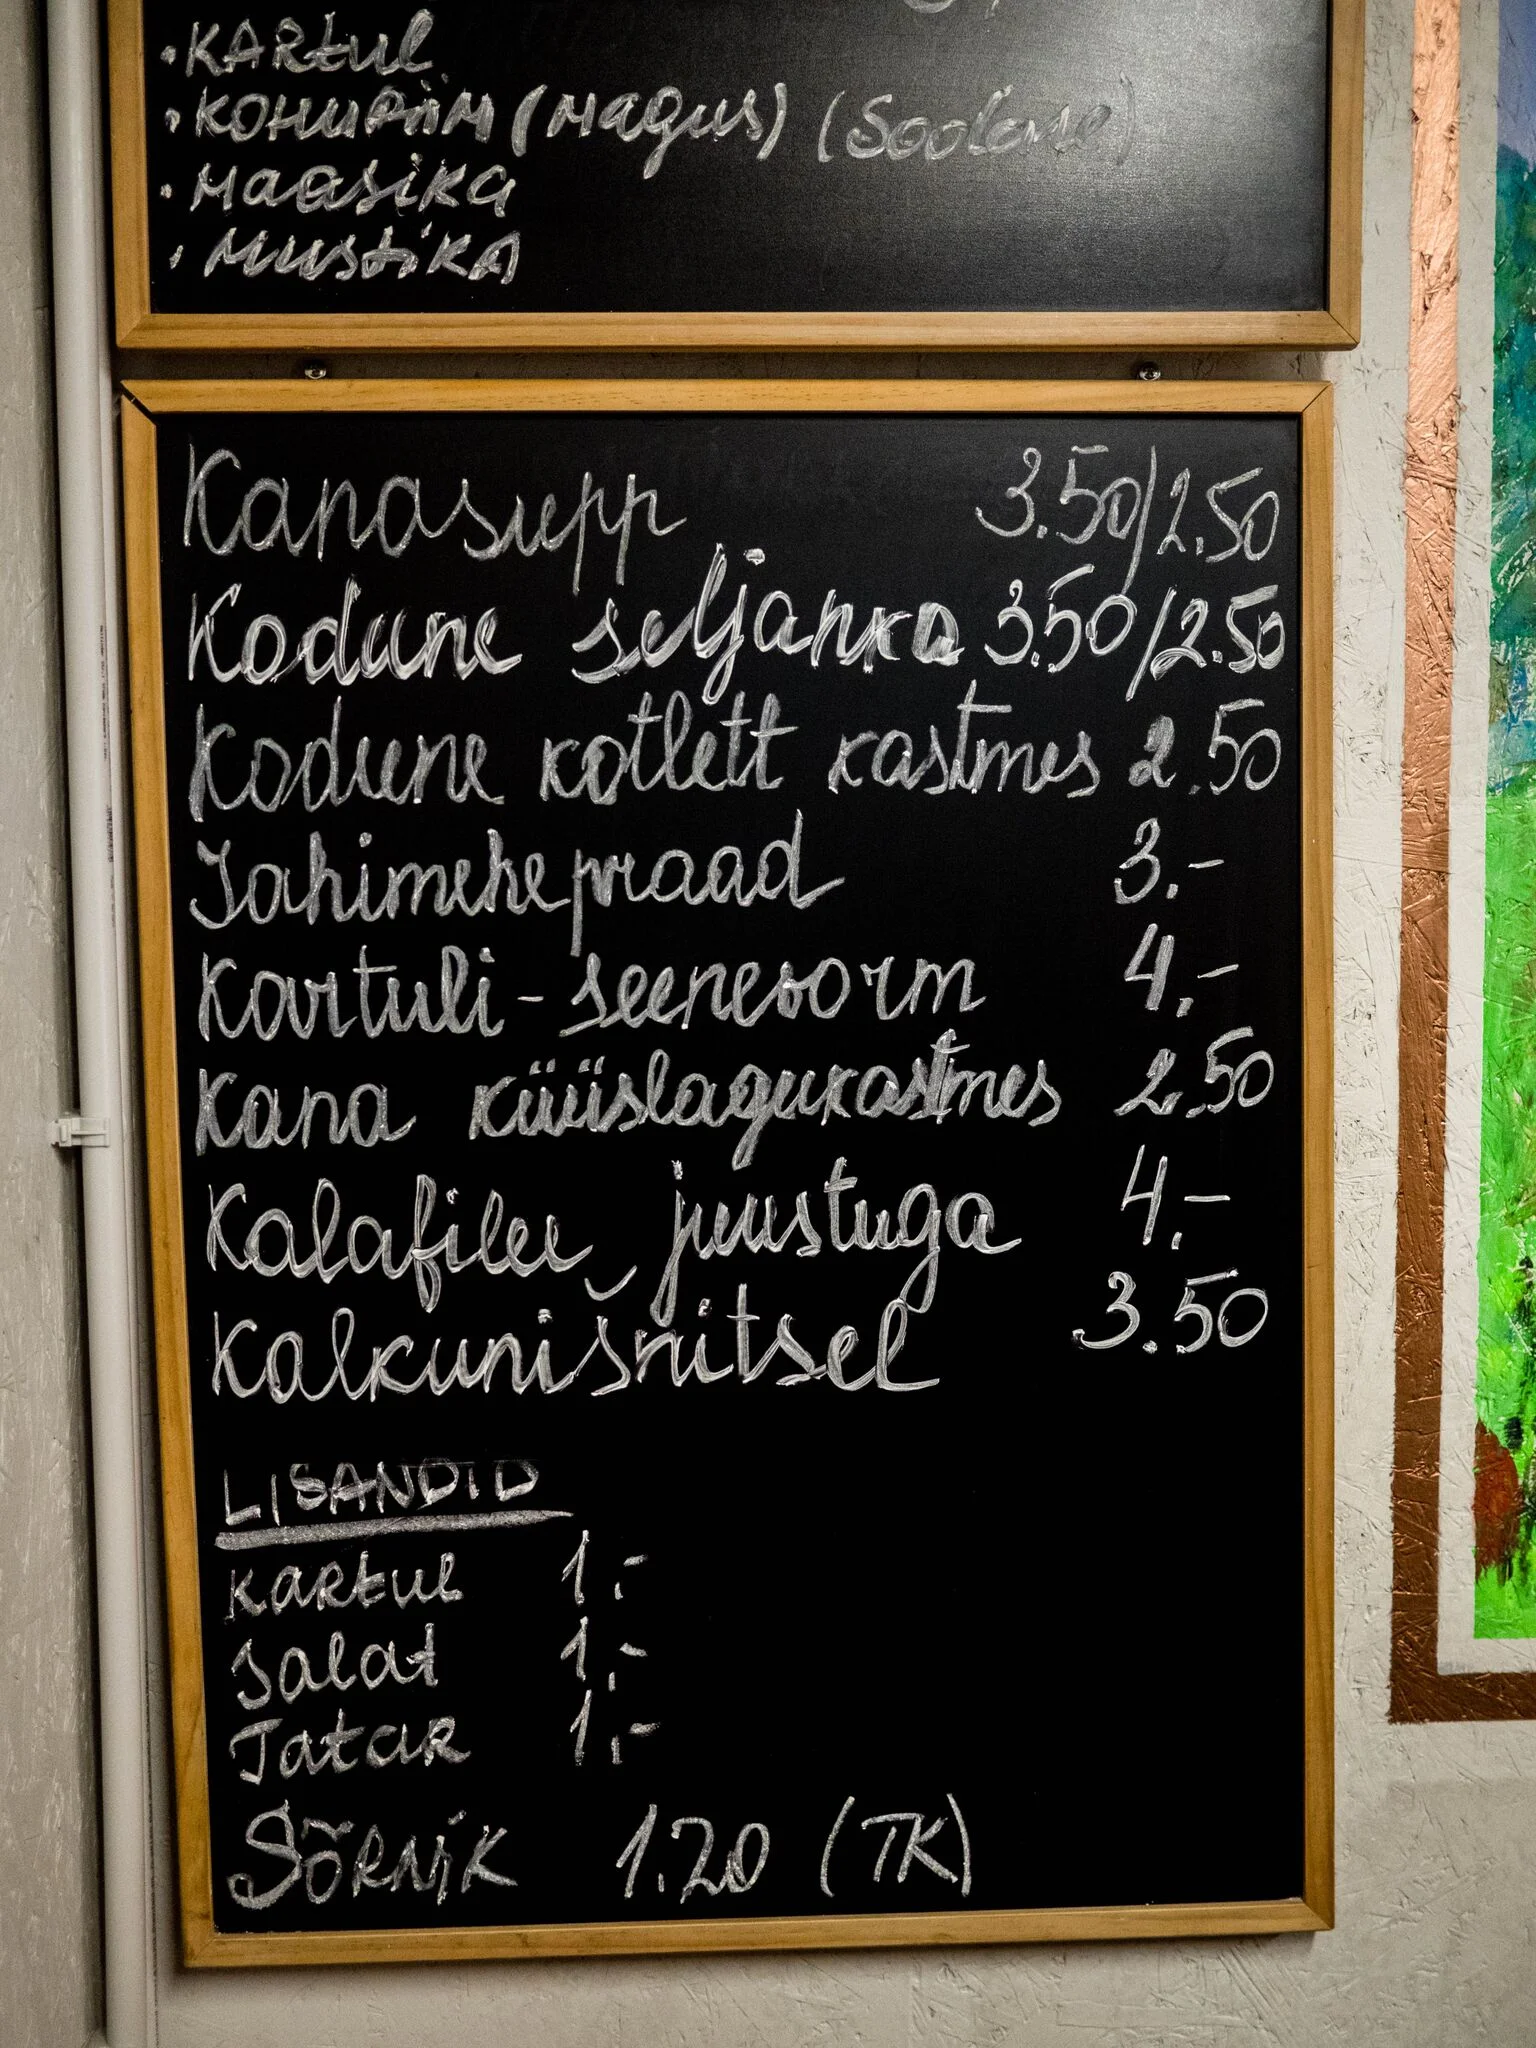 • KARTUL
• KOHUPIIM (MAGUS) (Soolane)
• MAASIKA
• MUSTIKA
Kanasupp 3.50/2.50
Kodune seljanka 3.50/2.50
Kodune kotlett kastmes 2.50
Jahimehe praad 3.-
Kartuli-seenevorm 4.-
Kana küüslaugukastmes 2.50
Kalafilee juustuga 4.-
Kalkunišnitsel 3.50
LISANDID
KARTUL 1.-
Salat 1.-
Tatar 1.-
SÕRNIK 1.20 (TK)